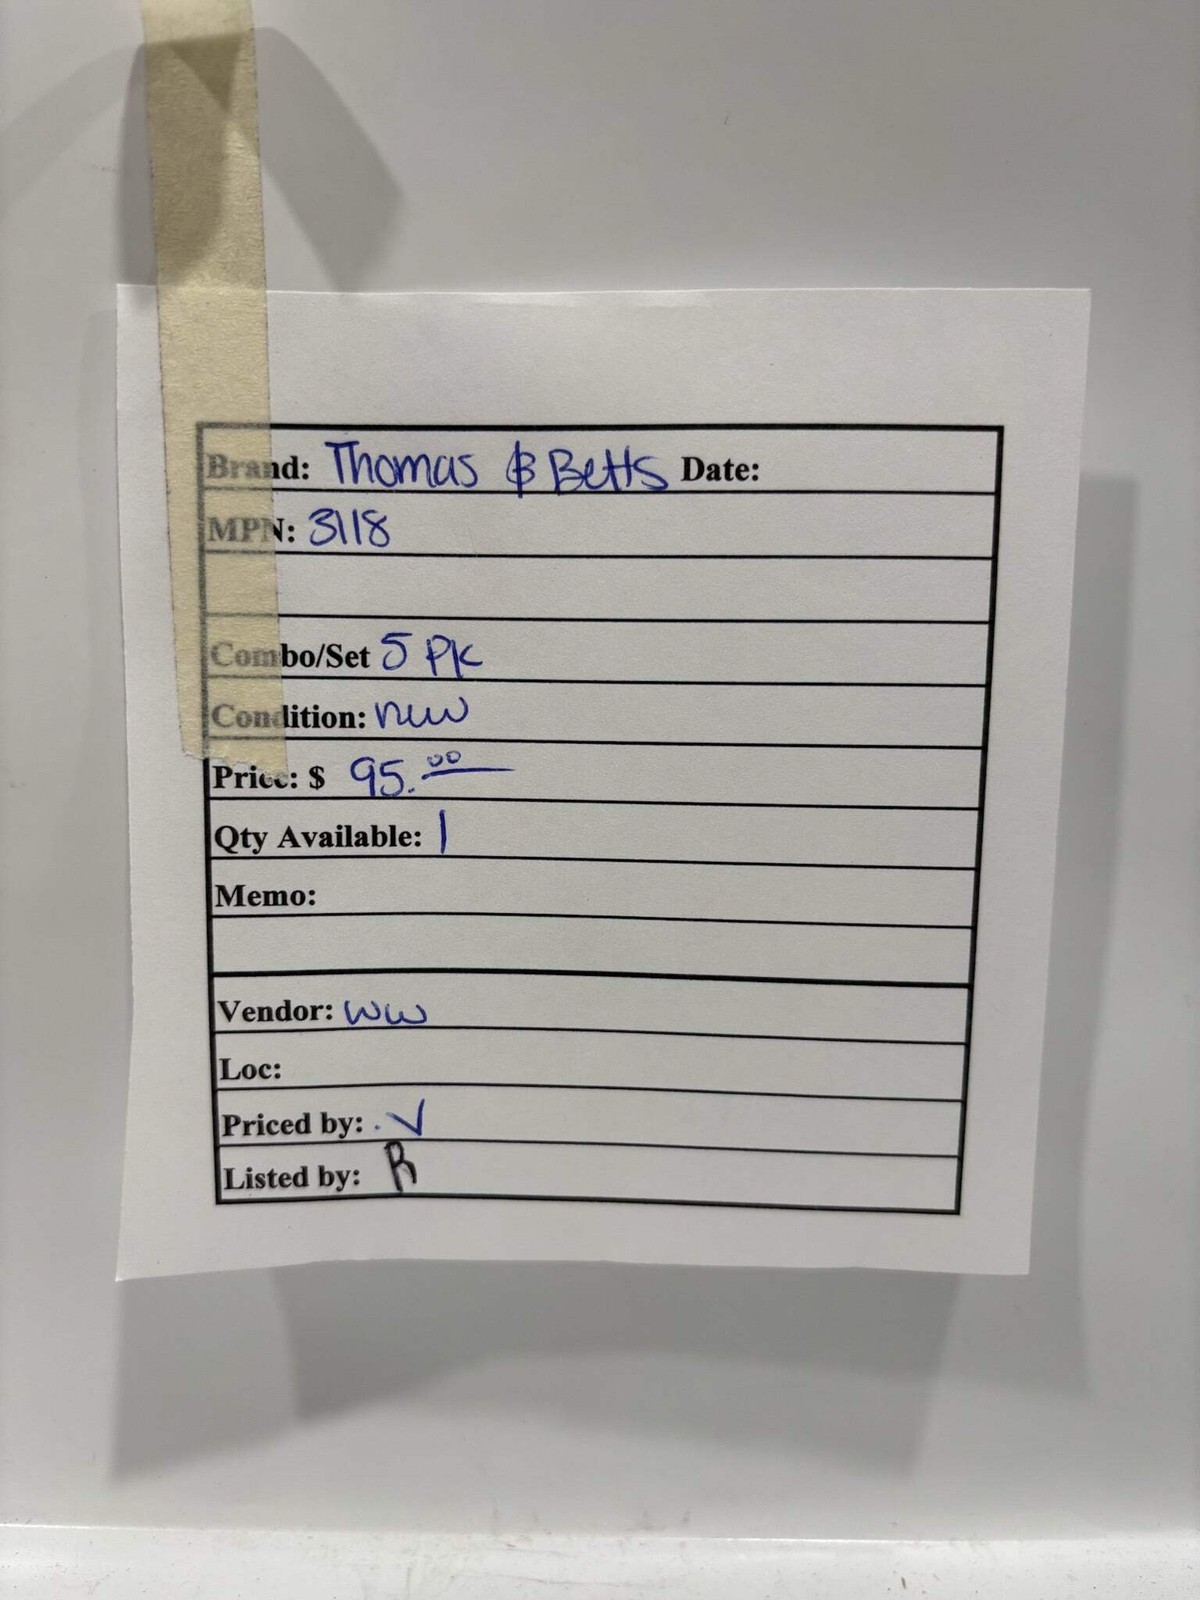 Brand: Thomas & Betts Date:
MPN: 3118
Combo/Set 5 PK
Condition: new
Price: $ 95.00
Qty Available: 1
Memo:
Vendor: WW
Loc:
Priced by: V
Listed by: R